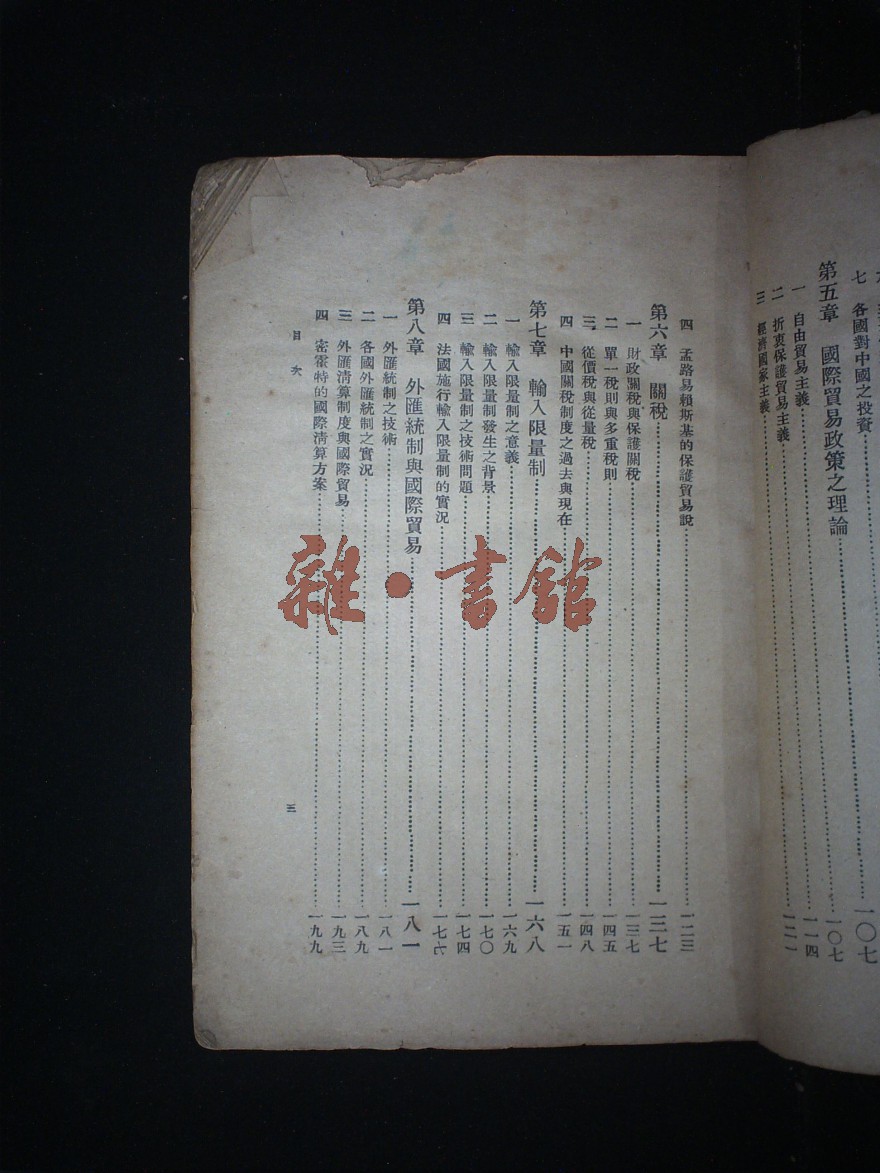 七 各國對中國之投資
第五章 國際貿易政策之理論……一〇七
一 自由貿易主義……一〇七
二 折衷保護貿易主義……一一四
三 經濟國家主義……一二一
四 孟路易賴斯基的保護貿易說……一二三
第六章 關稅……一三七
一 財政關稅與保護關稅……一三七
二 單一稅則與多重稅則……一四五
三 從價稅與從量稅……一四八
四 中國關稅制度之過去與現在……一五一
第七章 輸入限量制……一六八
一 輸入限量制之意義……一六九
二 輸入限量制發生之背景……一七〇
三 輸入限量制之技術問題……一七四
四 法國施行輸入限量制的實況……一七六
第八章 外匯統制與國際貿易……一八一
一 外匯統制之技術……一八一
二 各國外匯統制之實況……一八九
三 外匯清算制度與國際貿易……一九三
四 密霍特的國際清算方案……一九九
目次 三
雜·書館